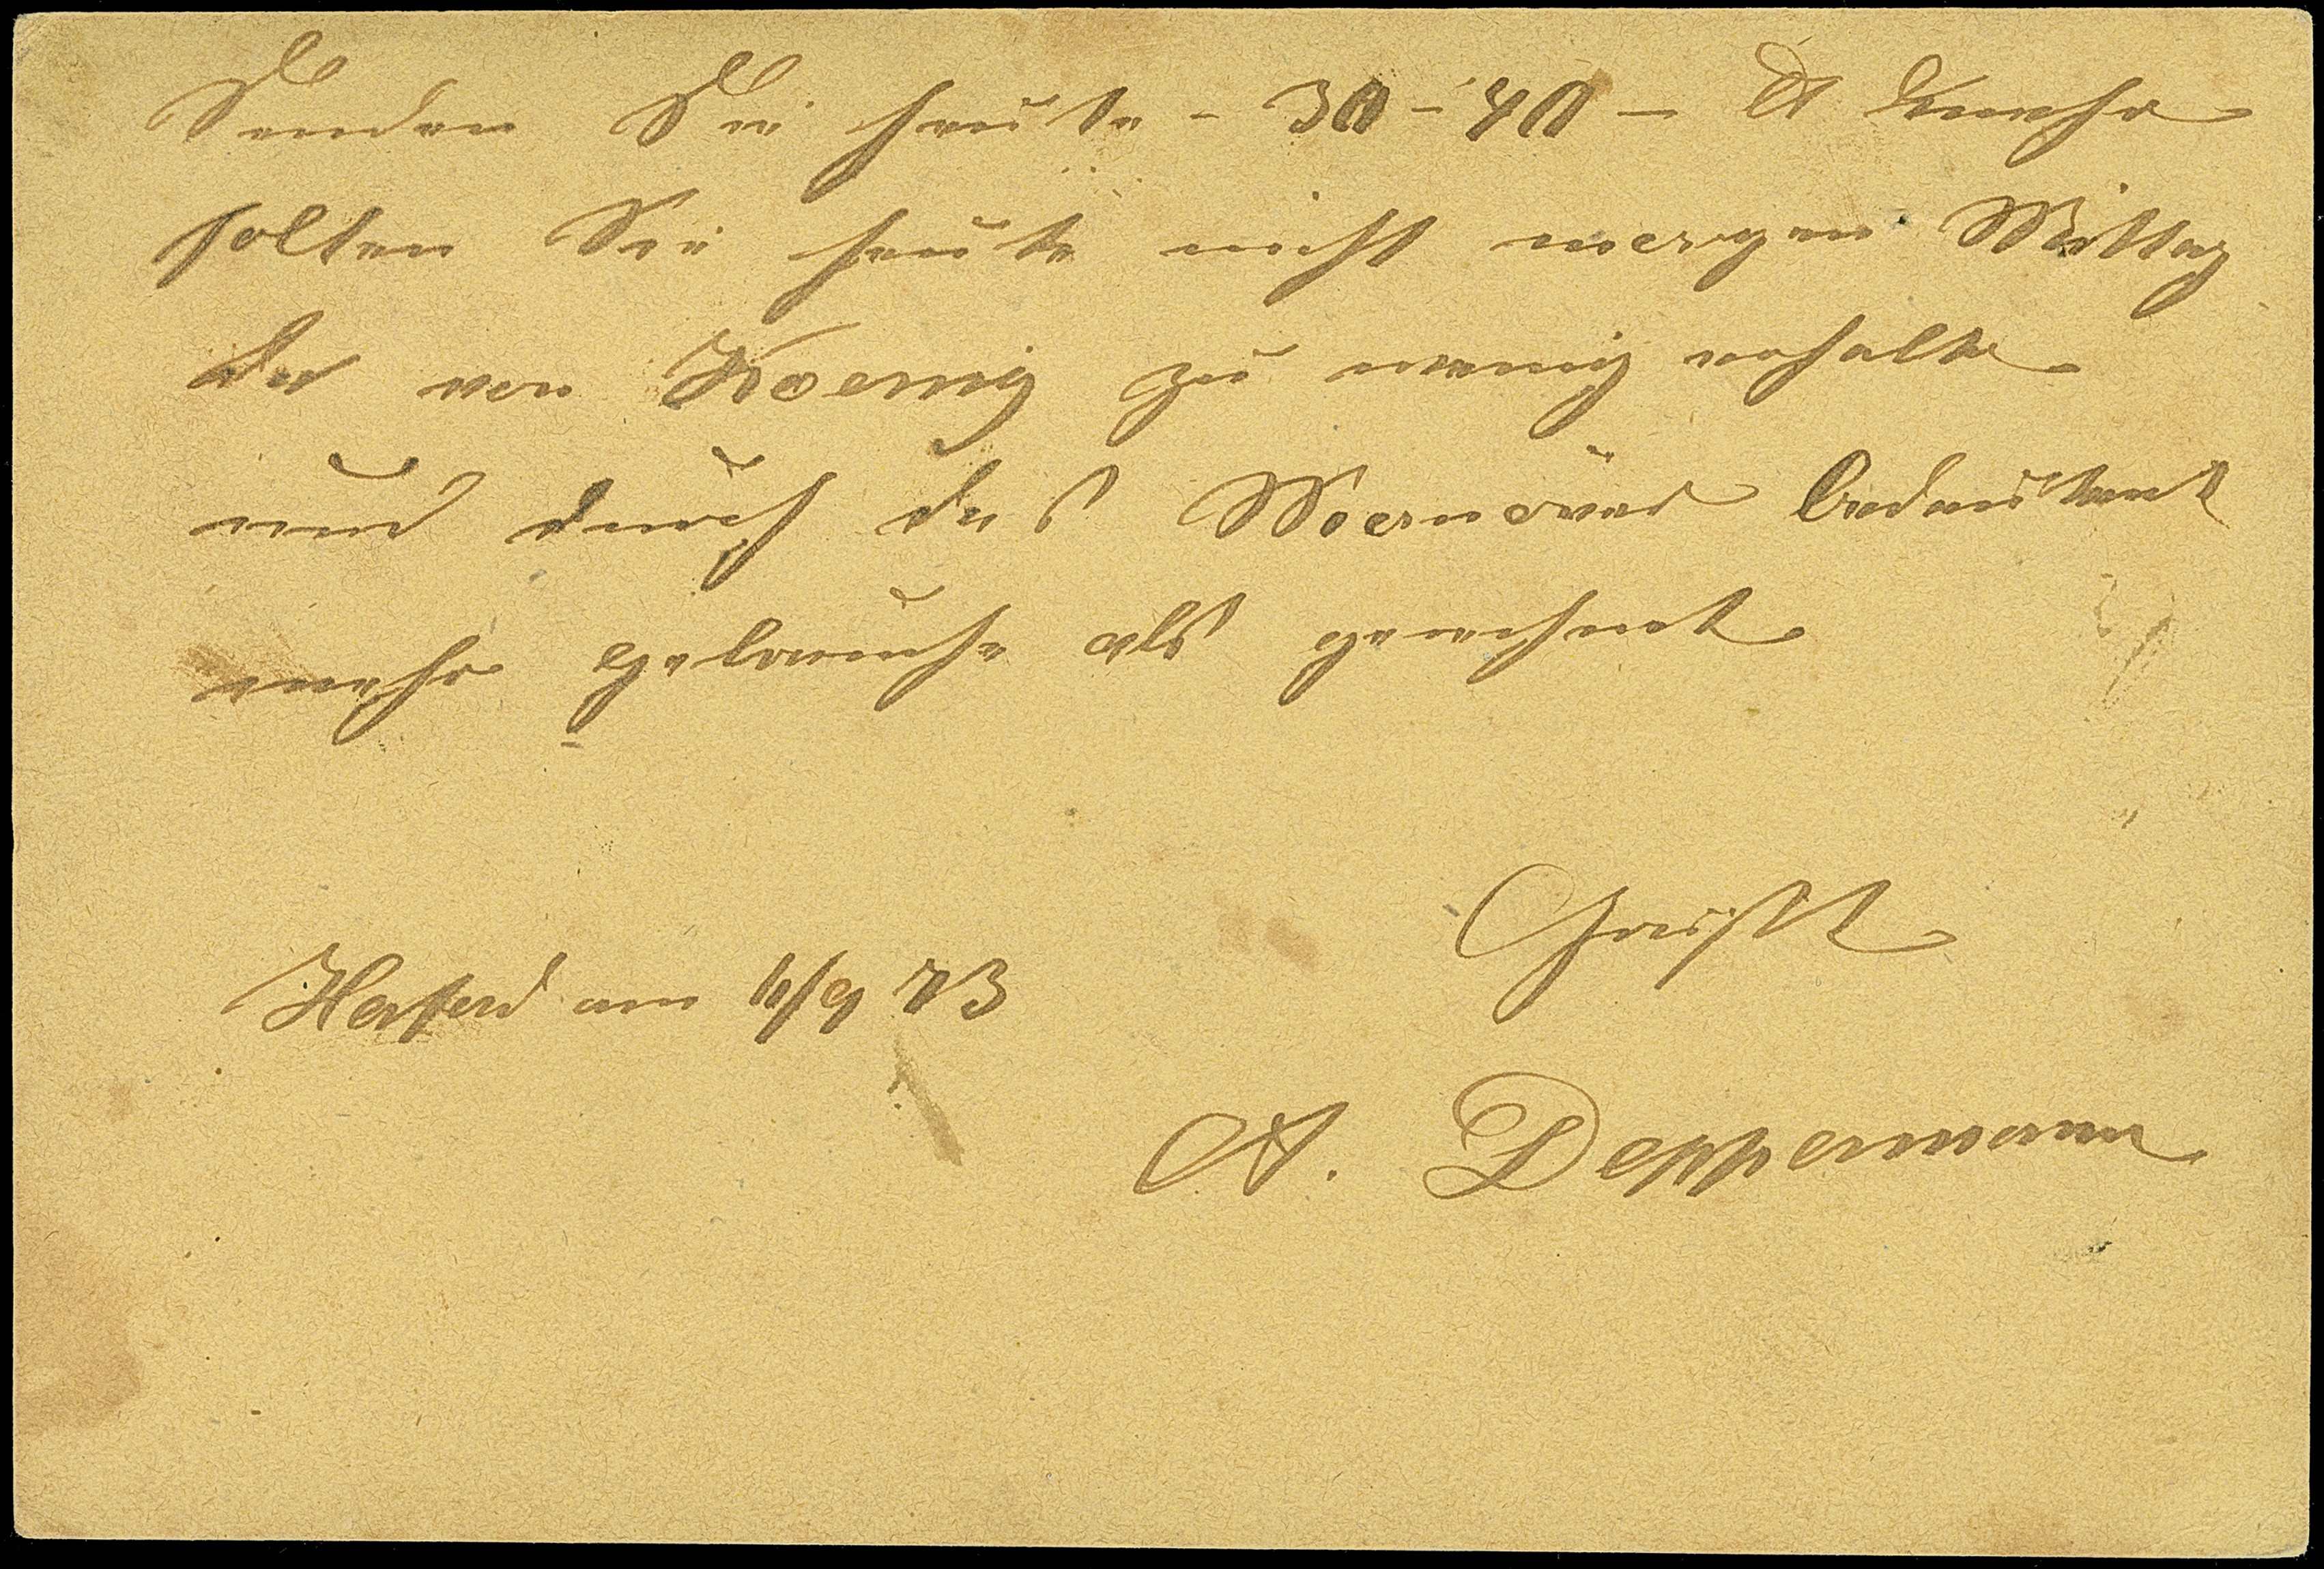 Senden Sie heute - 30 - 40 - ℔ mehr
solten Sie heute nicht morgen Mittag
da von Koenig zu wenig erhalte
und durch das bedeutent
mehr gebrauche als gerechnet
Grüßt
Herford am 11/9 73
A. Deppermann